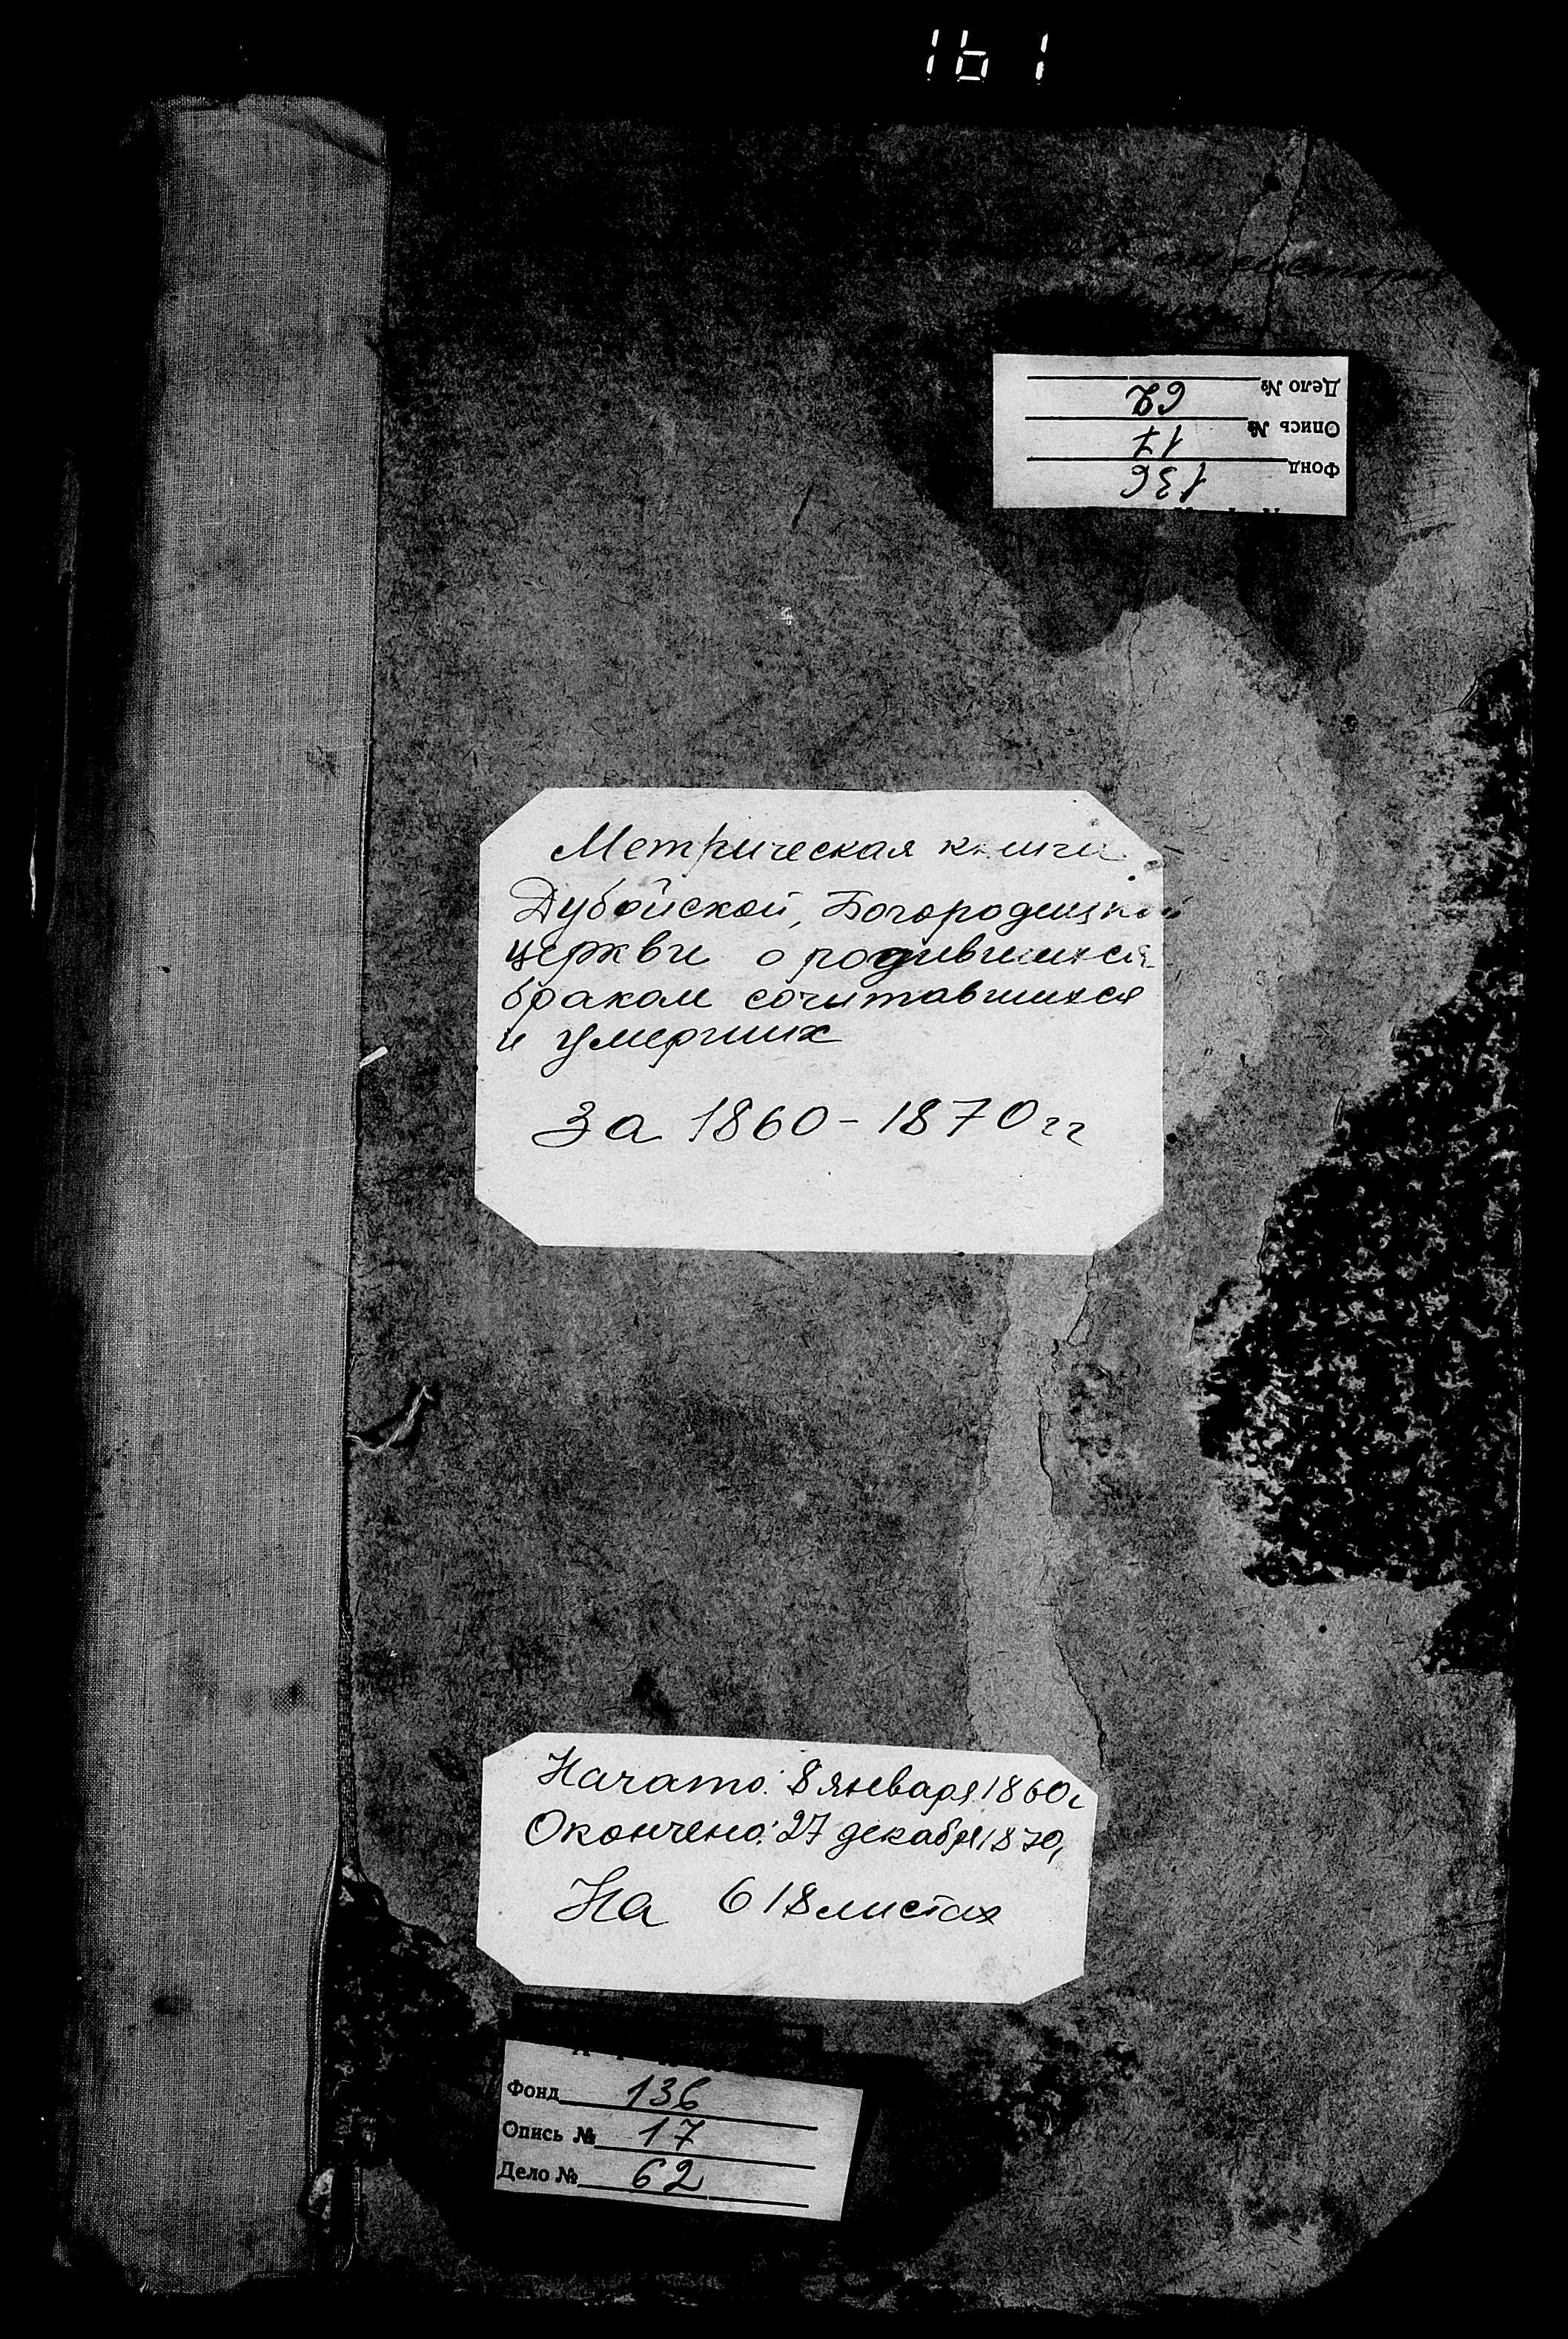 161
Дело № 62
Опись № 17
Фонд 136
Метрическая книга
Дубойской, Богородицкой
церкви о родившихся
браком сочитавшихся
и умерших
За 1860-1870 гг
Начато: 8 января 1860 г
Окончено: 27 декабря 1870,
На 618 листах
Фонд 136
Опись № 17
Дело № 62